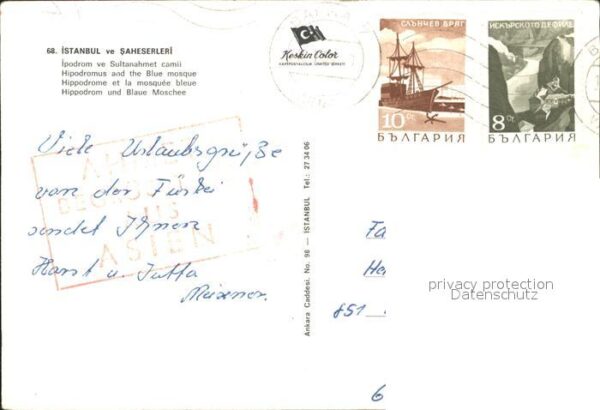 68. İSTANBUL ve ŞAHESERLERİ
İpodrom ve Sultanahmet camii
Hipodromus and the Blue mosque
Hippodrome et la mosquée bleue
Hippodrom und Blaue Moschee
Keskin Color
СЛЪНЧЕВ БРЯГ
10 ст.
БЪЛГАРИЯ
ИСКЪРСКОТО ДЕФИЛЕ
8 ст.
БЪЛГАРИЯ
Viele Urlaubsgrüße
von der Türkei
sendet Ihnen
Horst u. Jutta
ASIEN
Ankara Caddesi. No. 98 — İSTANBUL Tel.: 27 34 06
Fa
He
851
6
privacy protection
Datenschutz